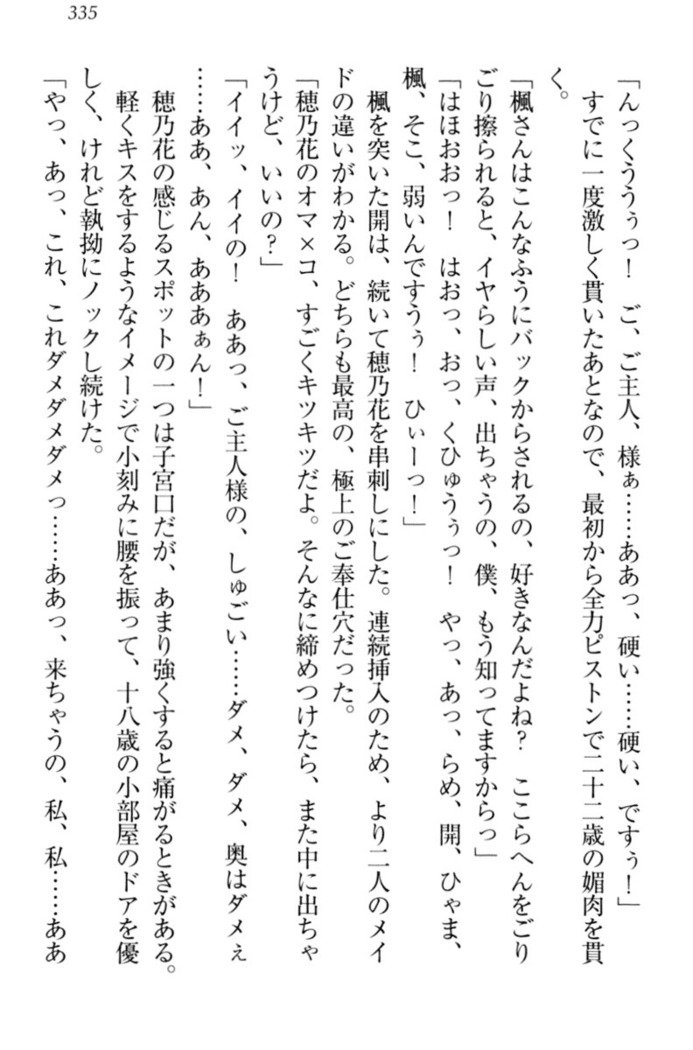 335
「んっくううぅっ！　ご、ご主人、様ぁ……ああっ、硬い……硬い、ですぅ！」
すでに一度激しく貫いたあとなので、最初から全力ピストンで二十二歳の媚肉を貫
く。
「楓さんはこんなふうにバックからされるの、好きなんだよね？　ここらへんをごり
ごり擦られると、イヤらしい声、出ちゃうの、僕、もう知ってますからっ」
「はほおおっ！　はおっ、おっ、くひゅうぅっ！　やっ、あっ、らめ、開、ひゃま、
楓、そこ、弱いんですうぅ！　ひぃーっ！」
楓を突いた開は、続いて穂乃花を串刺しにした。連続挿入のため、より二人のメイ
ドの違いがわかる。どちらも最高の、極上のご奉仕穴だった。
「穂乃花のオマ×コ、すごくキツキツだよ。そんなに締めつけたら、また中に出ちゃ
うけど、いいの？」
「イイッ、イイの！　ああっ、ご主人様の、しゅごい……ダメ、ダメ、奥はダメぇ
……ああ、あん、あああぁん！」
穂乃花の感じるスポットの一つは子宮口だが、あまり強くすると痛がるときがある。
軽くキスをするようなイメージで小刻みに腰を振って、十八歳の小部屋のドアを優
しく、けれど執拗にノックし続けた。
「やっ、あっ、これ、これダメダメダメっ……ああっ、来ちゃうの、私、私……ああ